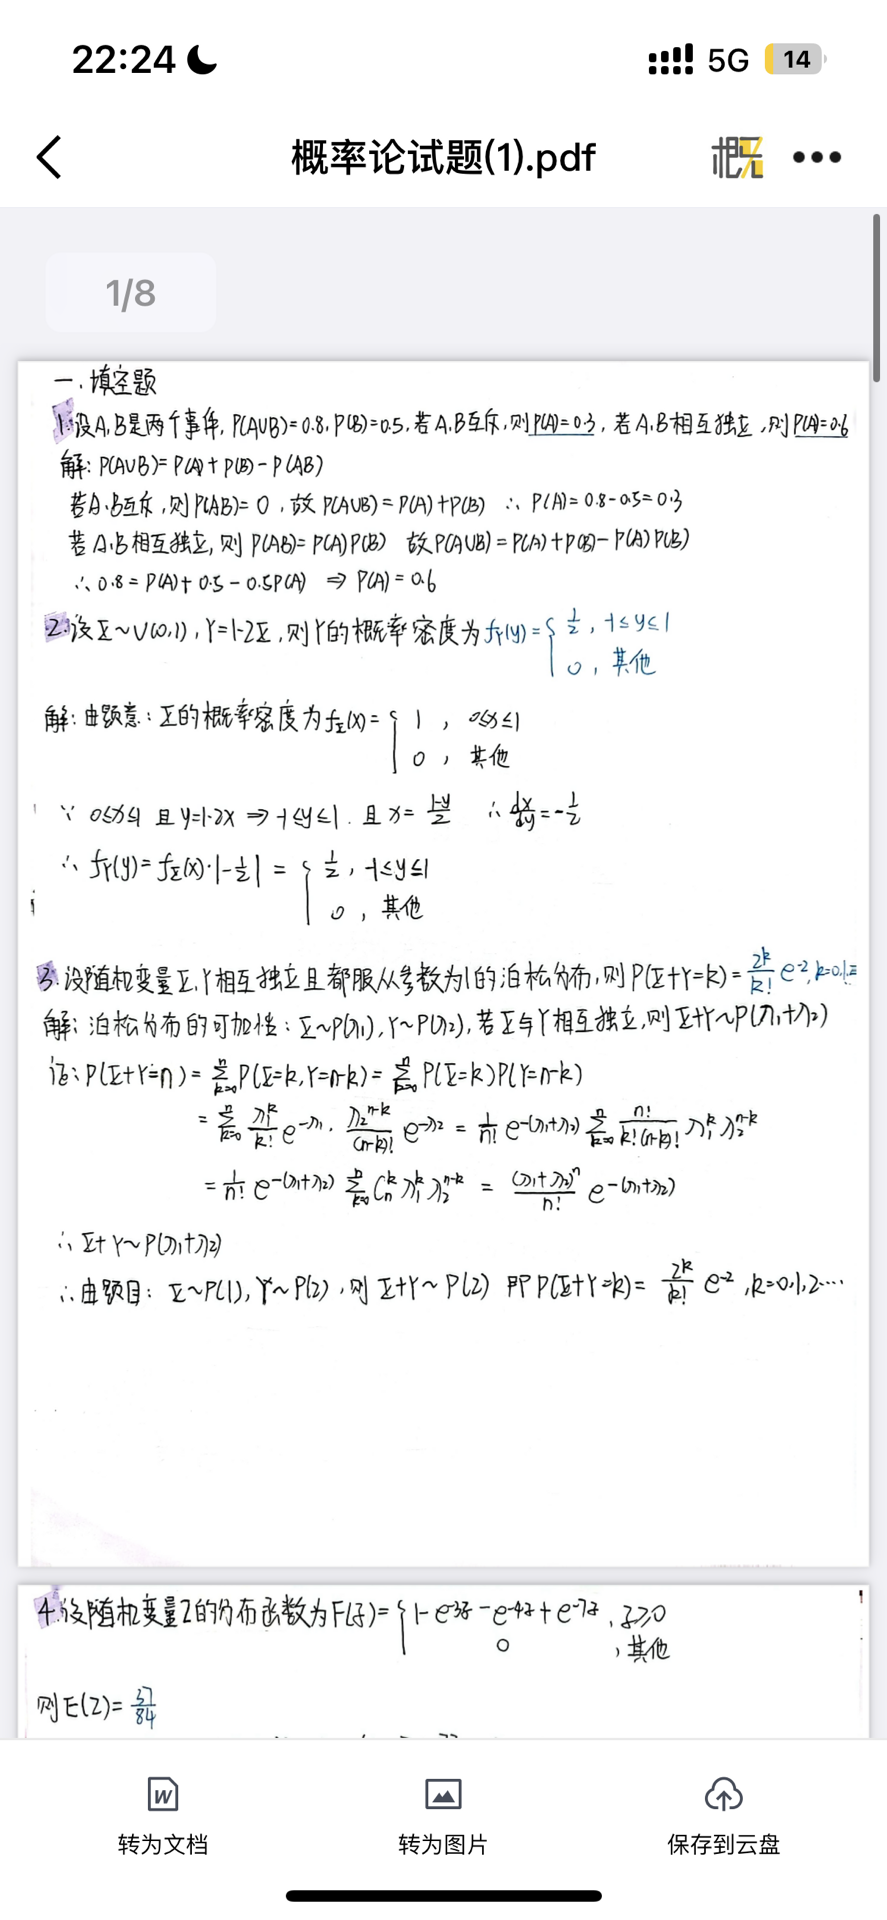 22:24
5G
14
概率论试题(1).pdf
1/8
一.填空题
1.设A,B是两个事件,P(A∪B)=0.8,P(B)=0.5,若A,B互斥,则P(A)=0.3,若A,B相互独立,则P(A)=0.6
解:P(A∪B)=P(A)+P(B)-P(AB)
若A,B互斥,则P(AB)=0,故P(A∪B)=P(A)+P(B) ∴P(A)=0.8-0.5=0.3
若A,B相互独立,则P(AB)=P(A)P(B) 故P(A∪B)=P(A)+P(B)-P(A)P(B)
∴0.8=P(A)+0.5-0.5P(A) ⇒ P(A)=0.6
2.设X~U(0,1),Y=1-2X,则Y的概率密度为f_Y(y)={1/2, -1≤y≤1
0, 其他
解:由题意:X的概率密度为f_X(x)={1, 0≤x≤1
0, 其他
∵ 0≤x≤1 且 y=1-2x ⇒ -1≤y≤1. 且 x=(1-y)/2 ∴ dx/dy=-1/2
∴ f_Y(y)=f_X(x)·|-1/2|={1/2, -1≤y≤1
0, 其他
3.设随机变量X,Y相互独立且都服从参数为1的泊松分布,则P(X+Y=k)=2^k/k! e^-2,k=0,1,2
解:泊松分布的可加性:X~P(λ1),Y~P(λ2),若X与Y相互独立,则X+Y~P(λ1+λ2)
证:P(X+Y=n)=∑_{k=0}^n P(X=k,Y=n-k)=∑_{k=0}^n P(X=k)P(Y=n-k)
=∑_{k=0}^n λ1^k/k! e^-λ1 · λ2^{n-k}/(n-k)! e^-λ2 = 1/n! e^-(λ1+λ2) ∑_{k=0}^n n!/k!(n-k)! λ1^k λ2^{n-k}
=1/n! e^-(λ1+λ2) ∑_{k=0}^n C_n^k λ1^k λ2^{n-k} = (λ1+λ2)^n/n! e^-(λ1+λ2)
∴ X+Y~P(λ1+λ2)
∴由题目:X~P(1),Y~P(2),则X+Y~P(2) 即P(X+Y=k)=2^k/k! e^-2,k=0,1,2····
4.设随机变量Z的分布函数为F(z)={1-e^-3z-e^-4z+e^-7z, z≥0
0 ,其他
则E(Z)=37/84
转为文档
转为图片
保存到云盘